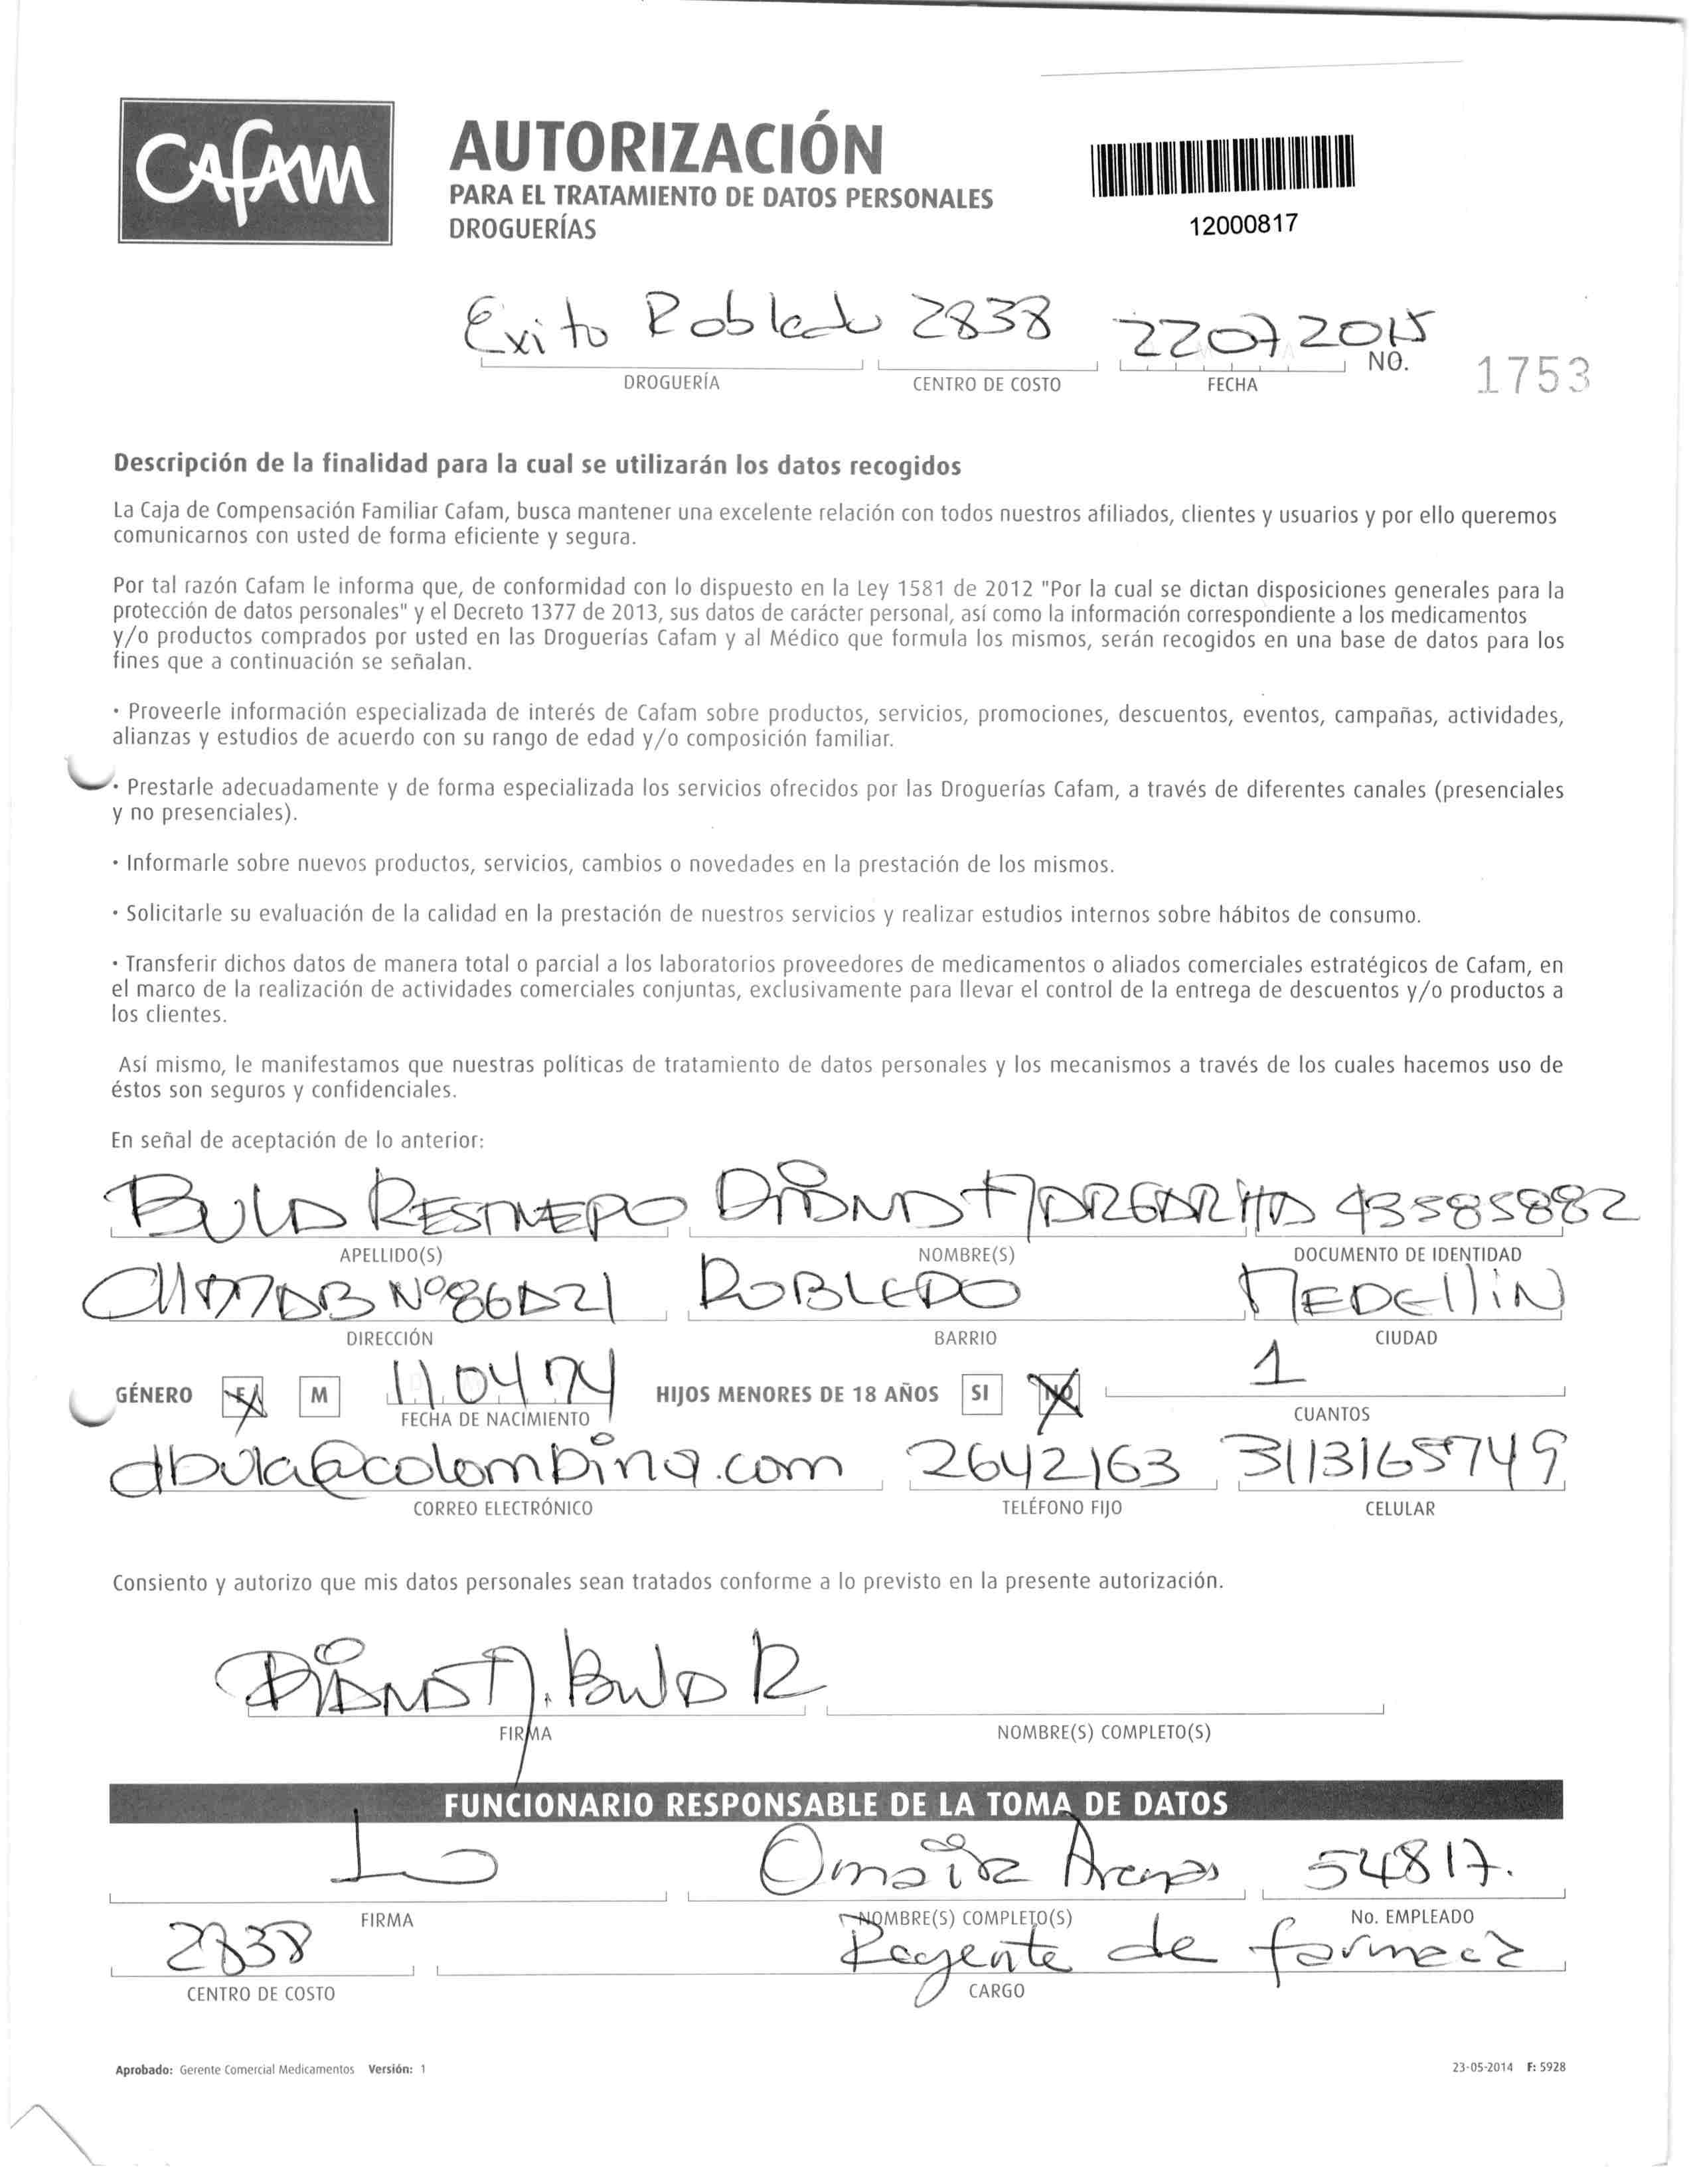 CAFAM
AUTORIZACIÓN
PARA EL TRATAMIENTO DE DATOS PERSONALES
DROGUERÍAS
12000817
Exito Robledo 2838 22072015
NO. 1753
DROGUERÍA CENTRO DE COSTO FECHA
Descripción de la finalidad para la cual se utilizarán los datos recogidos
La Caja de Compensación Familiar Cafam, busca mantener una excelente relación con todos nuestros afiliados, clientes y usuarios y por ello queremos
comunicarnos con usted de forma eficiente y segura.
Por tal razón Cafam le informa que, de conformidad con lo dispuesto en la Ley 1581 de 2012 "Por la cual se dictan disposiciones generales para la
protección de datos personales" y el Decreto 1377 de 2013, sus datos de carácter personal, así como la información correspondiente a los medicamentos
y/o productos comprados por usted en las Droguerías Cafam y al Médico que formula los mismos, serán recogidos en una base de datos para los
fines que a continuación se señalan.
· Proveerle información especializada de interés de Cafam sobre productos, servicios, promociones, descuentos, eventos, campañas, actividades,
alianzas y estudios de acuerdo con su rango de edad y/o composición familiar.
· Prestarle adecuadamente y de forma especializada los servicios ofrecidos por las Droguerías Cafam, a través de diferentes canales (presenciales
y no presenciales).
· Informarle sobre nuevos productos, servicios, cambios o novedades en la prestación de los mismos.
· Solicitarle su evaluación de la calidad en la prestación de nuestros servicios y realizar estudios internos sobre hábitos de consumo.
· Transferir dichos datos de manera total o parcial a los laboratorios proveedores de medicamentos o aliados comerciales estratégicos de Cafam, en
el marco de la realización de actividades comerciales conjuntas, exclusivamente para llevar el control de la entrega de descuentos y/o productos a
los clientes.
Así mismo, le manifestamos que nuestras políticas de tratamiento de datos personales y los mecanismos a través de los cuales hacemos uso de
éstos son seguros y confidenciales.
En señal de aceptación de lo anterior:
BULA RESTREPO DIANA MARGARITA 43585882
APELLIDO(S) NOMBRE(S) DOCUMENTO DE IDENTIDAD
Nº86A21 ROBLEDO MEDELLIN
DIRECCIÓN BARRIO CIUDAD
GÉNERO F M 110474 HIJOS MENORES DE 18 AÑOS SI NO 1
FECHA DE NACIMIENTO CUANTOS
dbula@colombina.com 2642163 3113165749
CORREO ELECTRÓNICO TELÉFONO FIJO CELULAR
Consiento y autorizo que mis datos personales sean tratados conforme a lo previsto en la presente autorización.
DIANA M. BULA R
FIRMA NOMBRE(S) COMPLETO(S)
FUNCIONARIO RESPONSABLE DE LA TOMA DE DATOS
Omaira Arenas 54817.
FIRMA NOMBRE(S) COMPLETO(S) No. EMPLEADO
2838 Regente de farmacia
CENTRO DE COSTO CARGO
Aprobado: Gerente Comercial Medicamentos Versión: 1 23-05-2014 F: 5928